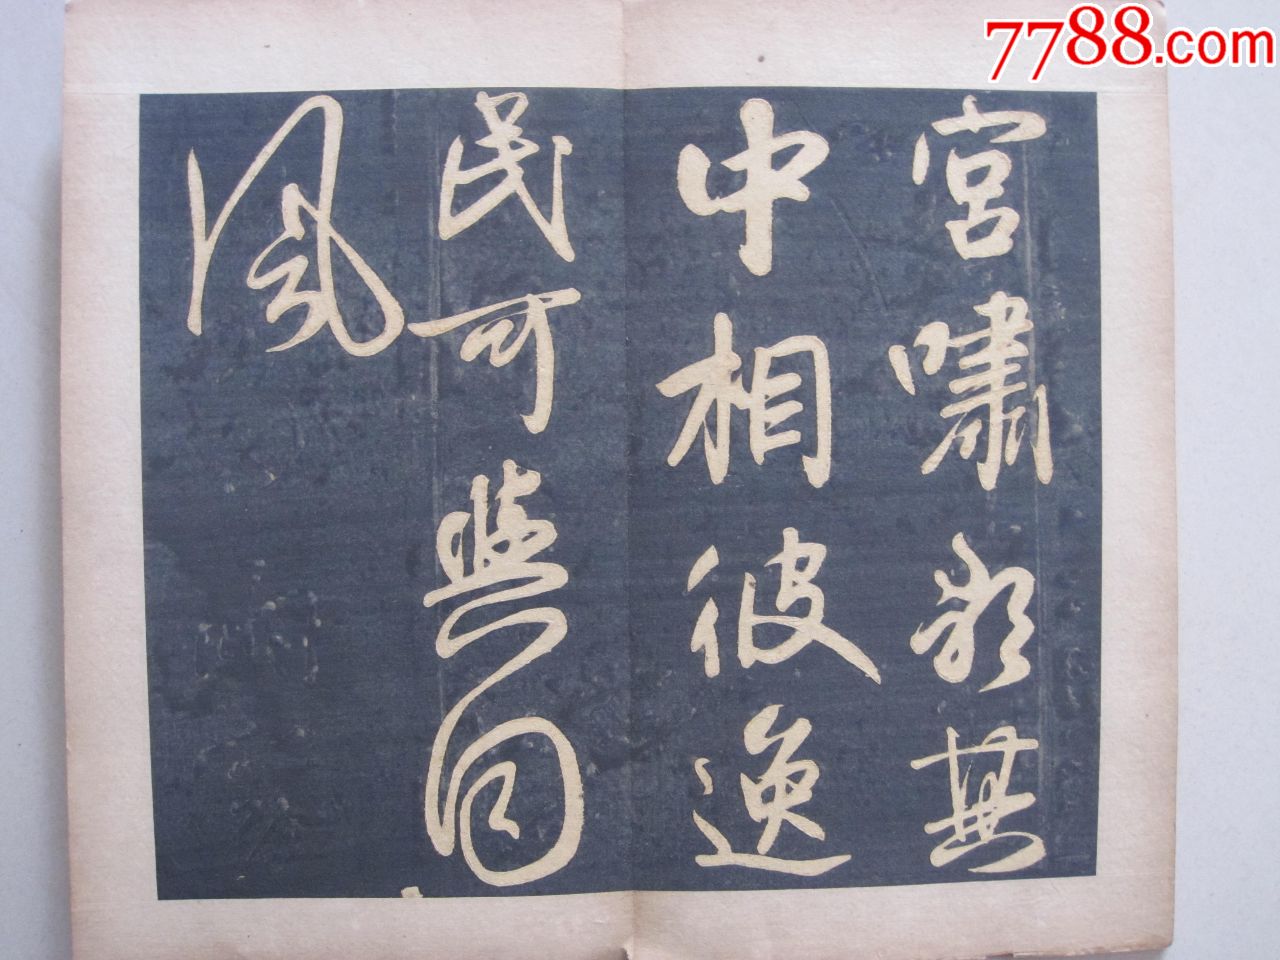 宮嘯無
中相彼逸
民可與同
風
7788.com